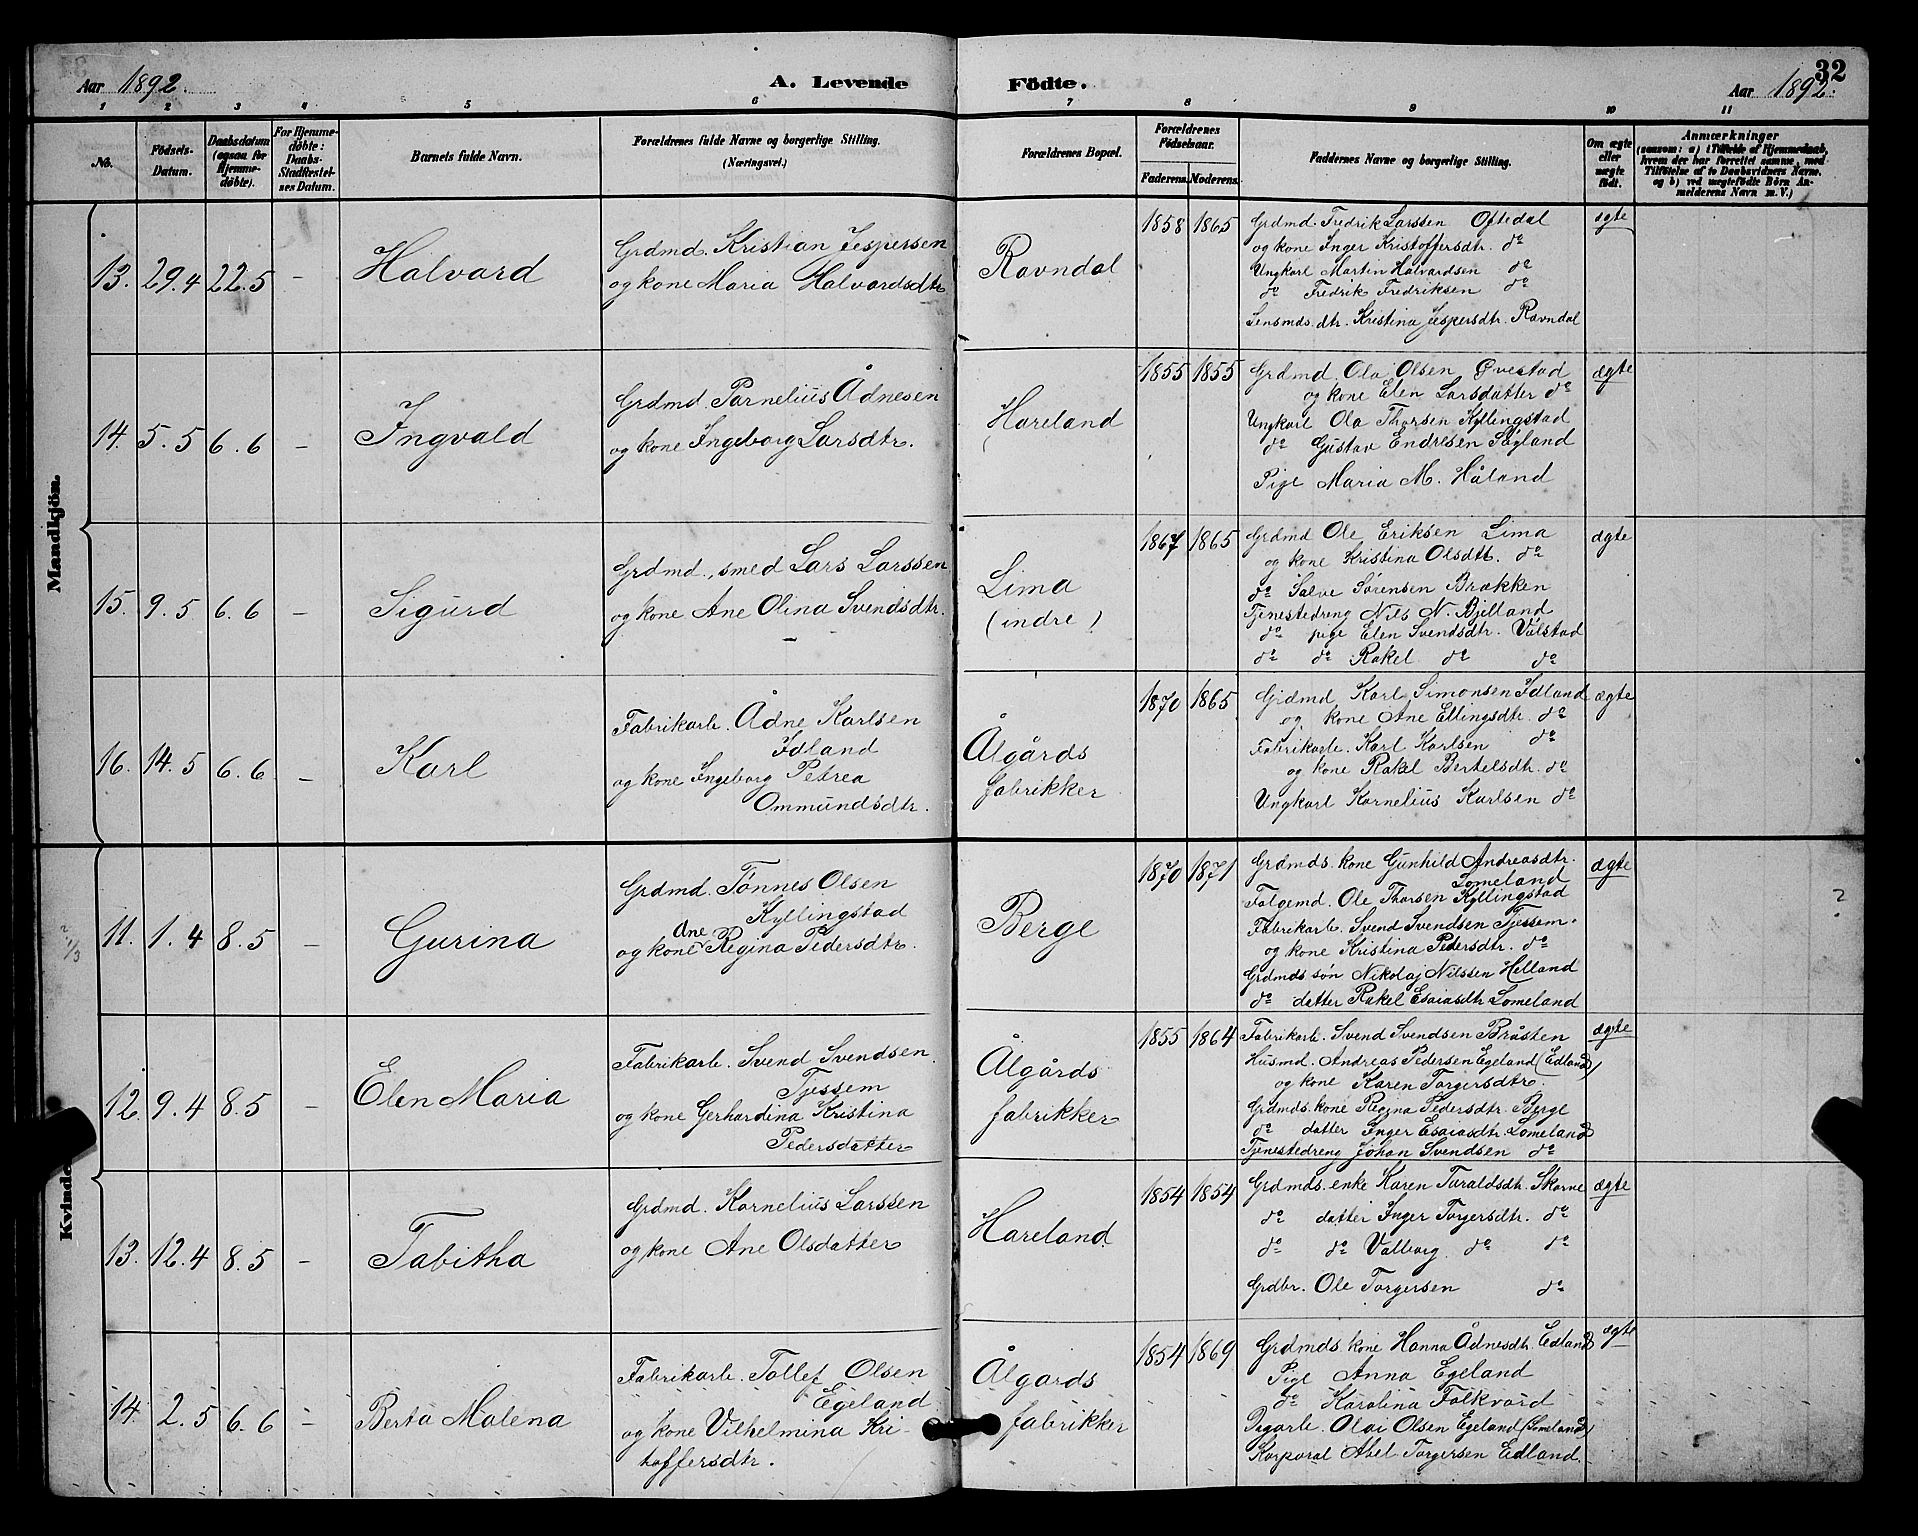 32
Aar 1892.
A. Levende Födte.
Aar 1892.
1 2 3 4 5 6 7 8 9 10 11
No.
Födsels-Datum.
Daabsdatum (ogsaa for Hjemmedöbte).
For Hjemmedöbte: Daabs-Stadfæstelsnes Datum.
Barnets fulde Navn.
Forældrenes fulde Navne og borgerlige Stilling.
(Næringsvei.)
Forældrenes Bopæl.
Forældrenes Födselsaar.
Faderens. Moderens.
Faddernes Navne og borgerlige Stilling.
Om ægte eller uægte födt.
Anmærkninger
(saasom: a) i Tilfælde af Hjemmedaab, hvem der har forrettet samme, med Tilföielse af to Daabsvidners Navne, og b) ved uægtefödte Börn Anmelderens Navn m. V.)
Mandkjön.
13. 29.4 22.5 –
Halvard
Grdmd. Kristian Jespersen
og kone Maria Halvardsdtr
Ravndal
1858 1865
Grdmd. Fredrik Larssen Oftedal
og kone Inger Kristoffersdtr. do
Ungkarl Martin Halvardsen do
do Fredrik Fredriksen do
Lensmds.dtr. Kristina Jespersdtr. Ravndal
ægte
14. 5.5 6.6 –
Ingvald
Grdmd. Parnelius Ådnesen
og kone Ingeborg Larsdtr.
Hareland
1855 1855
Grdmd Ola Olsen Øvestad
og kone Elen Larsdatter do
Ungkarl Ola Thorsen Kyllingstad
do Gustav Endresen Sægland
Pige Maria M. Håland
ægte
15. 9.5 6.6 –
Sigurd
Grdmd., smed Lars Larssen
og kone Ane Olina Svendsdtr.
–
Lima
(indre)
1867 1865
Grdmd Ole Eriksen Lima
og kone Kristina Olsdtt. do
do Salve Sørensen Brækken
Tjenestedreng Nils N. Bjelland
do pige Elen Svendsdtr. Válstad
do do Rakel do do
ægte
16. 14.5 6.6 –
Karl
Fabrikarb. Ådne Karlsen
Idland
og kone Ingeborg Petrea
Ommundsdtr.
Ålgårds
fabrikker
1870 1865
Grdmd Karl Simonsen Idland
og kone Ane Ellingsdtr. do
Fabrikarb. Karl Karlsen do
og kone Rakel Bertelsdtr. do
Ungkarl Kornelius Karlsen do
ægte
Kvinde
? 1/3
11. 1.4 8.5 –
Gurina
Grdmd. Tønnes Olsen
Kyllingstad
Ane
og kone Regina Pedersdtr.
Berge
1870 1871
Grdmds. kone Gunhild Andreasdtr.
Lomeland
Folgemd. Ole Thorsen Kyllingstad
Fabrikarb. Svend Svendsen Tjessem.
og kone Kristina Pedersdtr. do
Grdmds søn Nikolaj Nilssen Helland
do datter Rakel Esaiasdtr Lomeland
ægte
?
12. 9.4 8.5 –
Elen Maria
Fabrikarb. Svend Svendsen
Tjessem
og kone Gerhardina Kristina
Pedersdatter
Ålgårds
fabrikker
1855 1864
Fabrikarb. Svend Svendsen Bråsten
Husmd. Andreas Pedersen Egeland (Edland)
og kone Karen Torgersdtr.
Grdmds. kone Regina Pedersdtr. Berge
do datter Inger Esaiasdtr. Lomeland
Tjenestedreng Johan Svendsen do
ægte
13. 12.4 8.5 –
Tabitha
Grdmd. Kornelius Larssen
og kone Ane Olsdatter
Hareland
1854 1854
Grdmds. enke Karen Taraldsdtr. Skorve
do datter Inger Torgersdtr. do
do do Valborg do do
Grdbr. Ole Torgersen do
ægte
14. 2.5 6.6 –
Berta Malena
Fabrikarb. Tollef Olsen
Egeland
og kone Vilhelmina Kri-
toffersdtr.
Ålgårds
fabrikker
1854 1869
Grdmds. kone Hanna Ådnesdtr. Edland
Pige Anna Egeland
do Karolina Folkvord
Dagarb. Olai Olsen Egeland (Lomeland)
Korporal Abel Torgersen Edland.
ægte